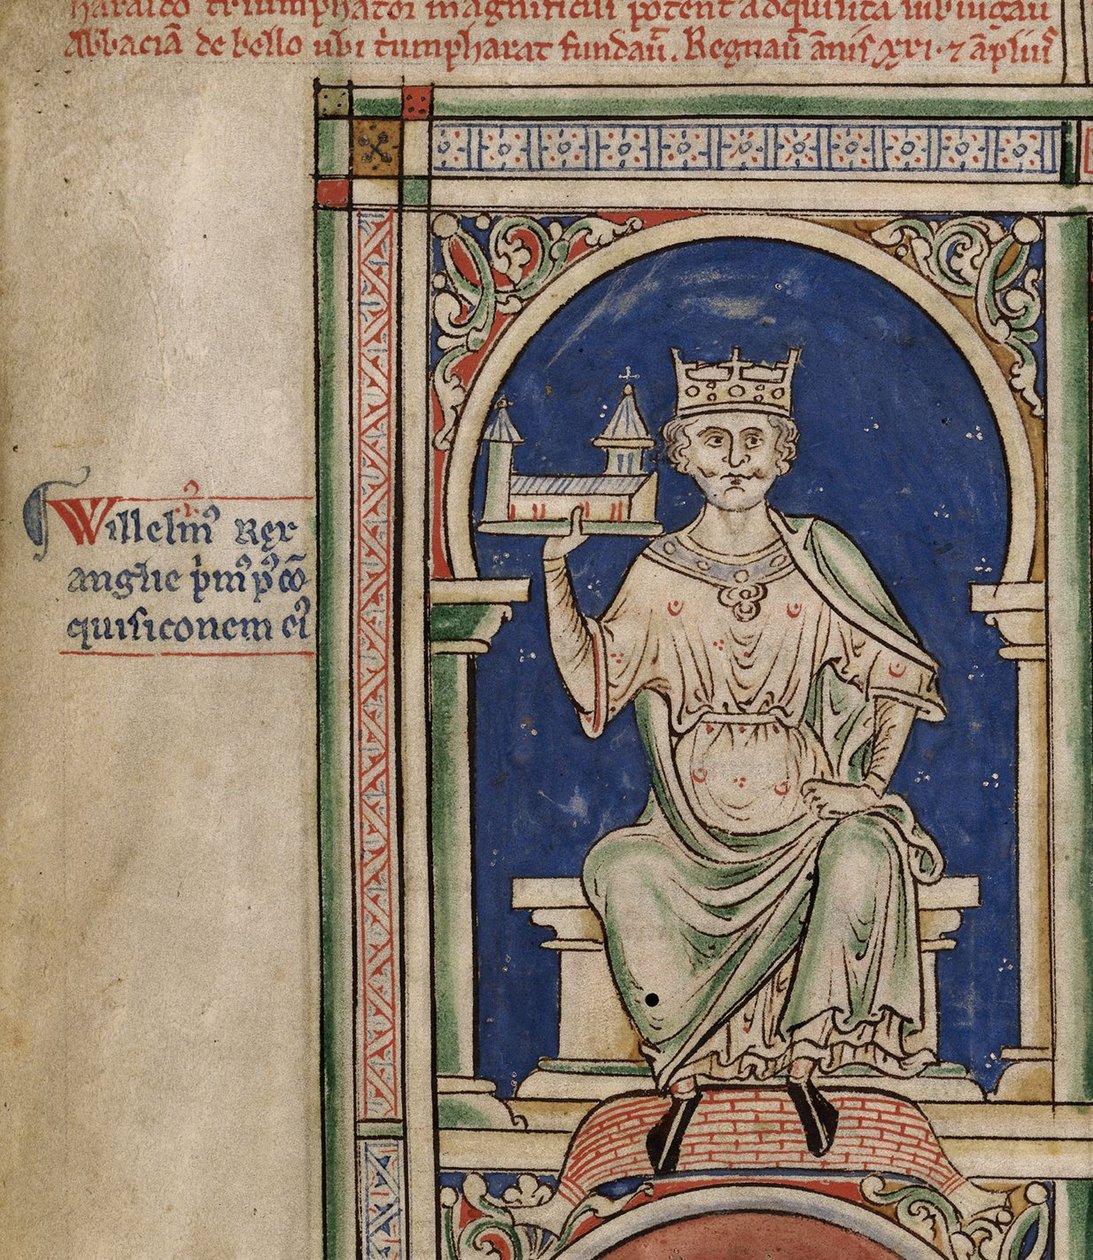 haraldo triumphator magnificus potent adquisita subiugaū
Abbaciā de bello ubi t͛umpharat fundau͛. Regnau͛ ānis xxi · ⁊
Willelmꝰ Rex
anglie pͥmꝰ pꝰ cō
quisiconem eiꝰ